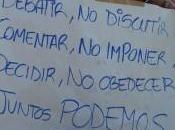 DEBATIR, NO DISCUTIR
COMENTAR, NO IMPONER
DECIDIR, NO OBEDECER
JUNTOS PODEMOS